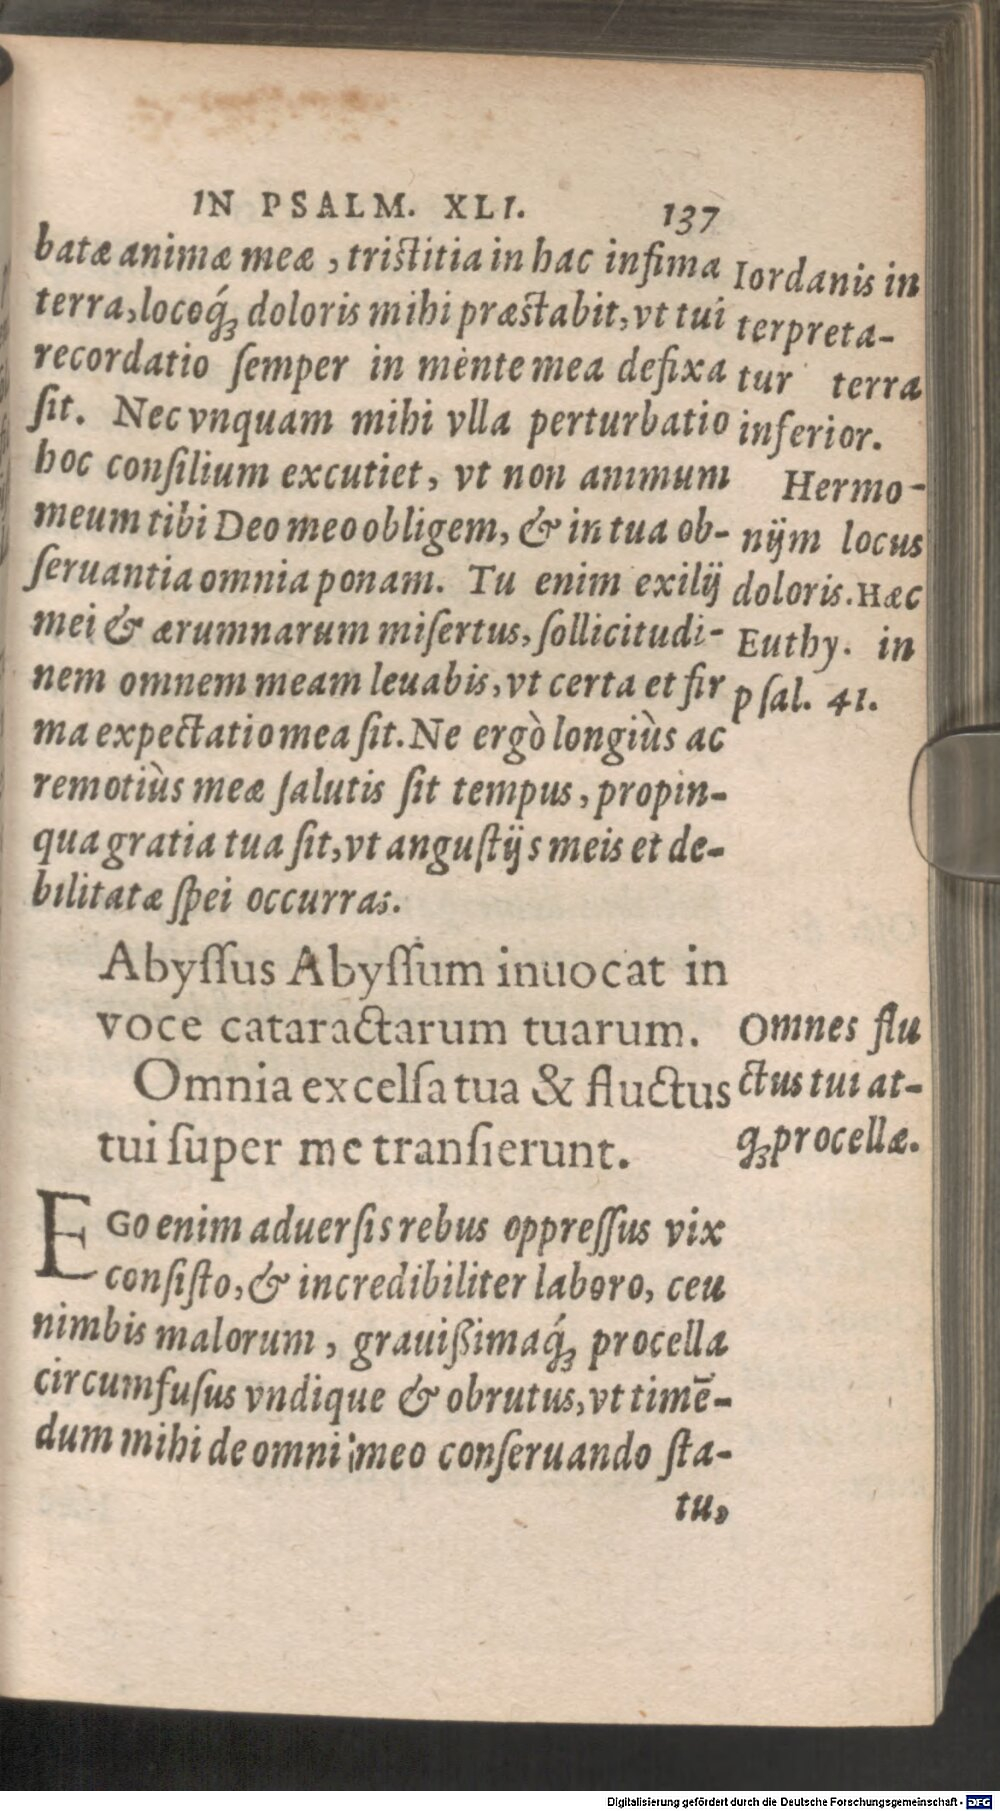 IN PSALM. XLI. 137
batæ animæ meæ, tristitia in hac infima
terra, locoq́₃ doloris mihi præstabit, vt tui
recordatio ſemper in mente mea defixa
ſit. Nec vnquam mihi vlla perturbatio
hoc conſilium excutiet, vt non animum
meum tibi Deo meo obligem, & in tua ob-
ſeruantia omnia ponam. Tu enim exilij
mei & ærumnarum miſertus, ſollicitudi-
nem omnem meam leuabis, vt certa et fir
ma expectatio mea ſit. Ne ergò longiùs ac
remotiùs meæ ſalutis ſit tempus, propin-
qua gratia tua ſit, vt anguſtijs meis et de-
bilitatæ ſpei occurras.
Iordanis in
terpreta-
tur terra
inferior.
Hermo-
nijm locus
doloris. Hæc
Euthy. in
pſal. 41.
Abyſſus Abyſſum inuocat in
voce cataractarum tuarum.
Omnia excelſa tua & fluctus
tui ſuper me tranſierunt.
Omnes flu
ctus tui at-
q₃ procellæ.
EGo enim aduerſis rebus oppreſſus vix
conſiſto, & incredibiliter laboro, ceu
nimbis malorum, grauißimaq́₃ procella
circumfuſus vndique & obrutus, vt timē-
dum mihi de omni meo conſeruando ſta-
tu,
Digitalisierung gefördert durch die Deutsche Forschungsgemeinschaft - DFG